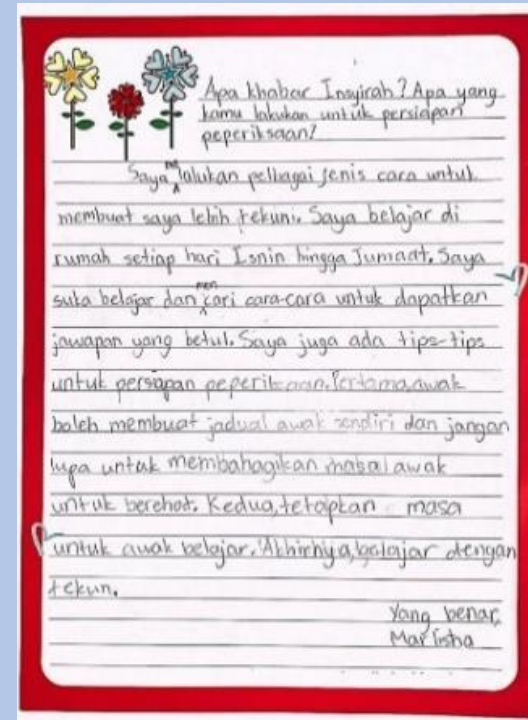 Apa khabar Insyirah? Apa yang
kamu lakukan untuk persiapan
peperiksaan?
Saya me lalukan pelbagai jenis cara untuk
membuat saya lebih tekun. Saya belajar di
rumah setiap hari Isnin hingga Jumaat. Saya
suka belajar dan men cari cara-cara untuk dapatkan
jawapan yang betul. Saya juga ada tips-tips
untuk persiapan peperiksaan. Pertama, awak
boleh membuat jadual awak sendiri dan jangan
lupa untuk membahagikan masa awak
untuk berehat. Kedua, tetapkan masa
untuk awak belajar. Akhirnya, belajar dengan
tekun.
Yang benar,
Marlisha